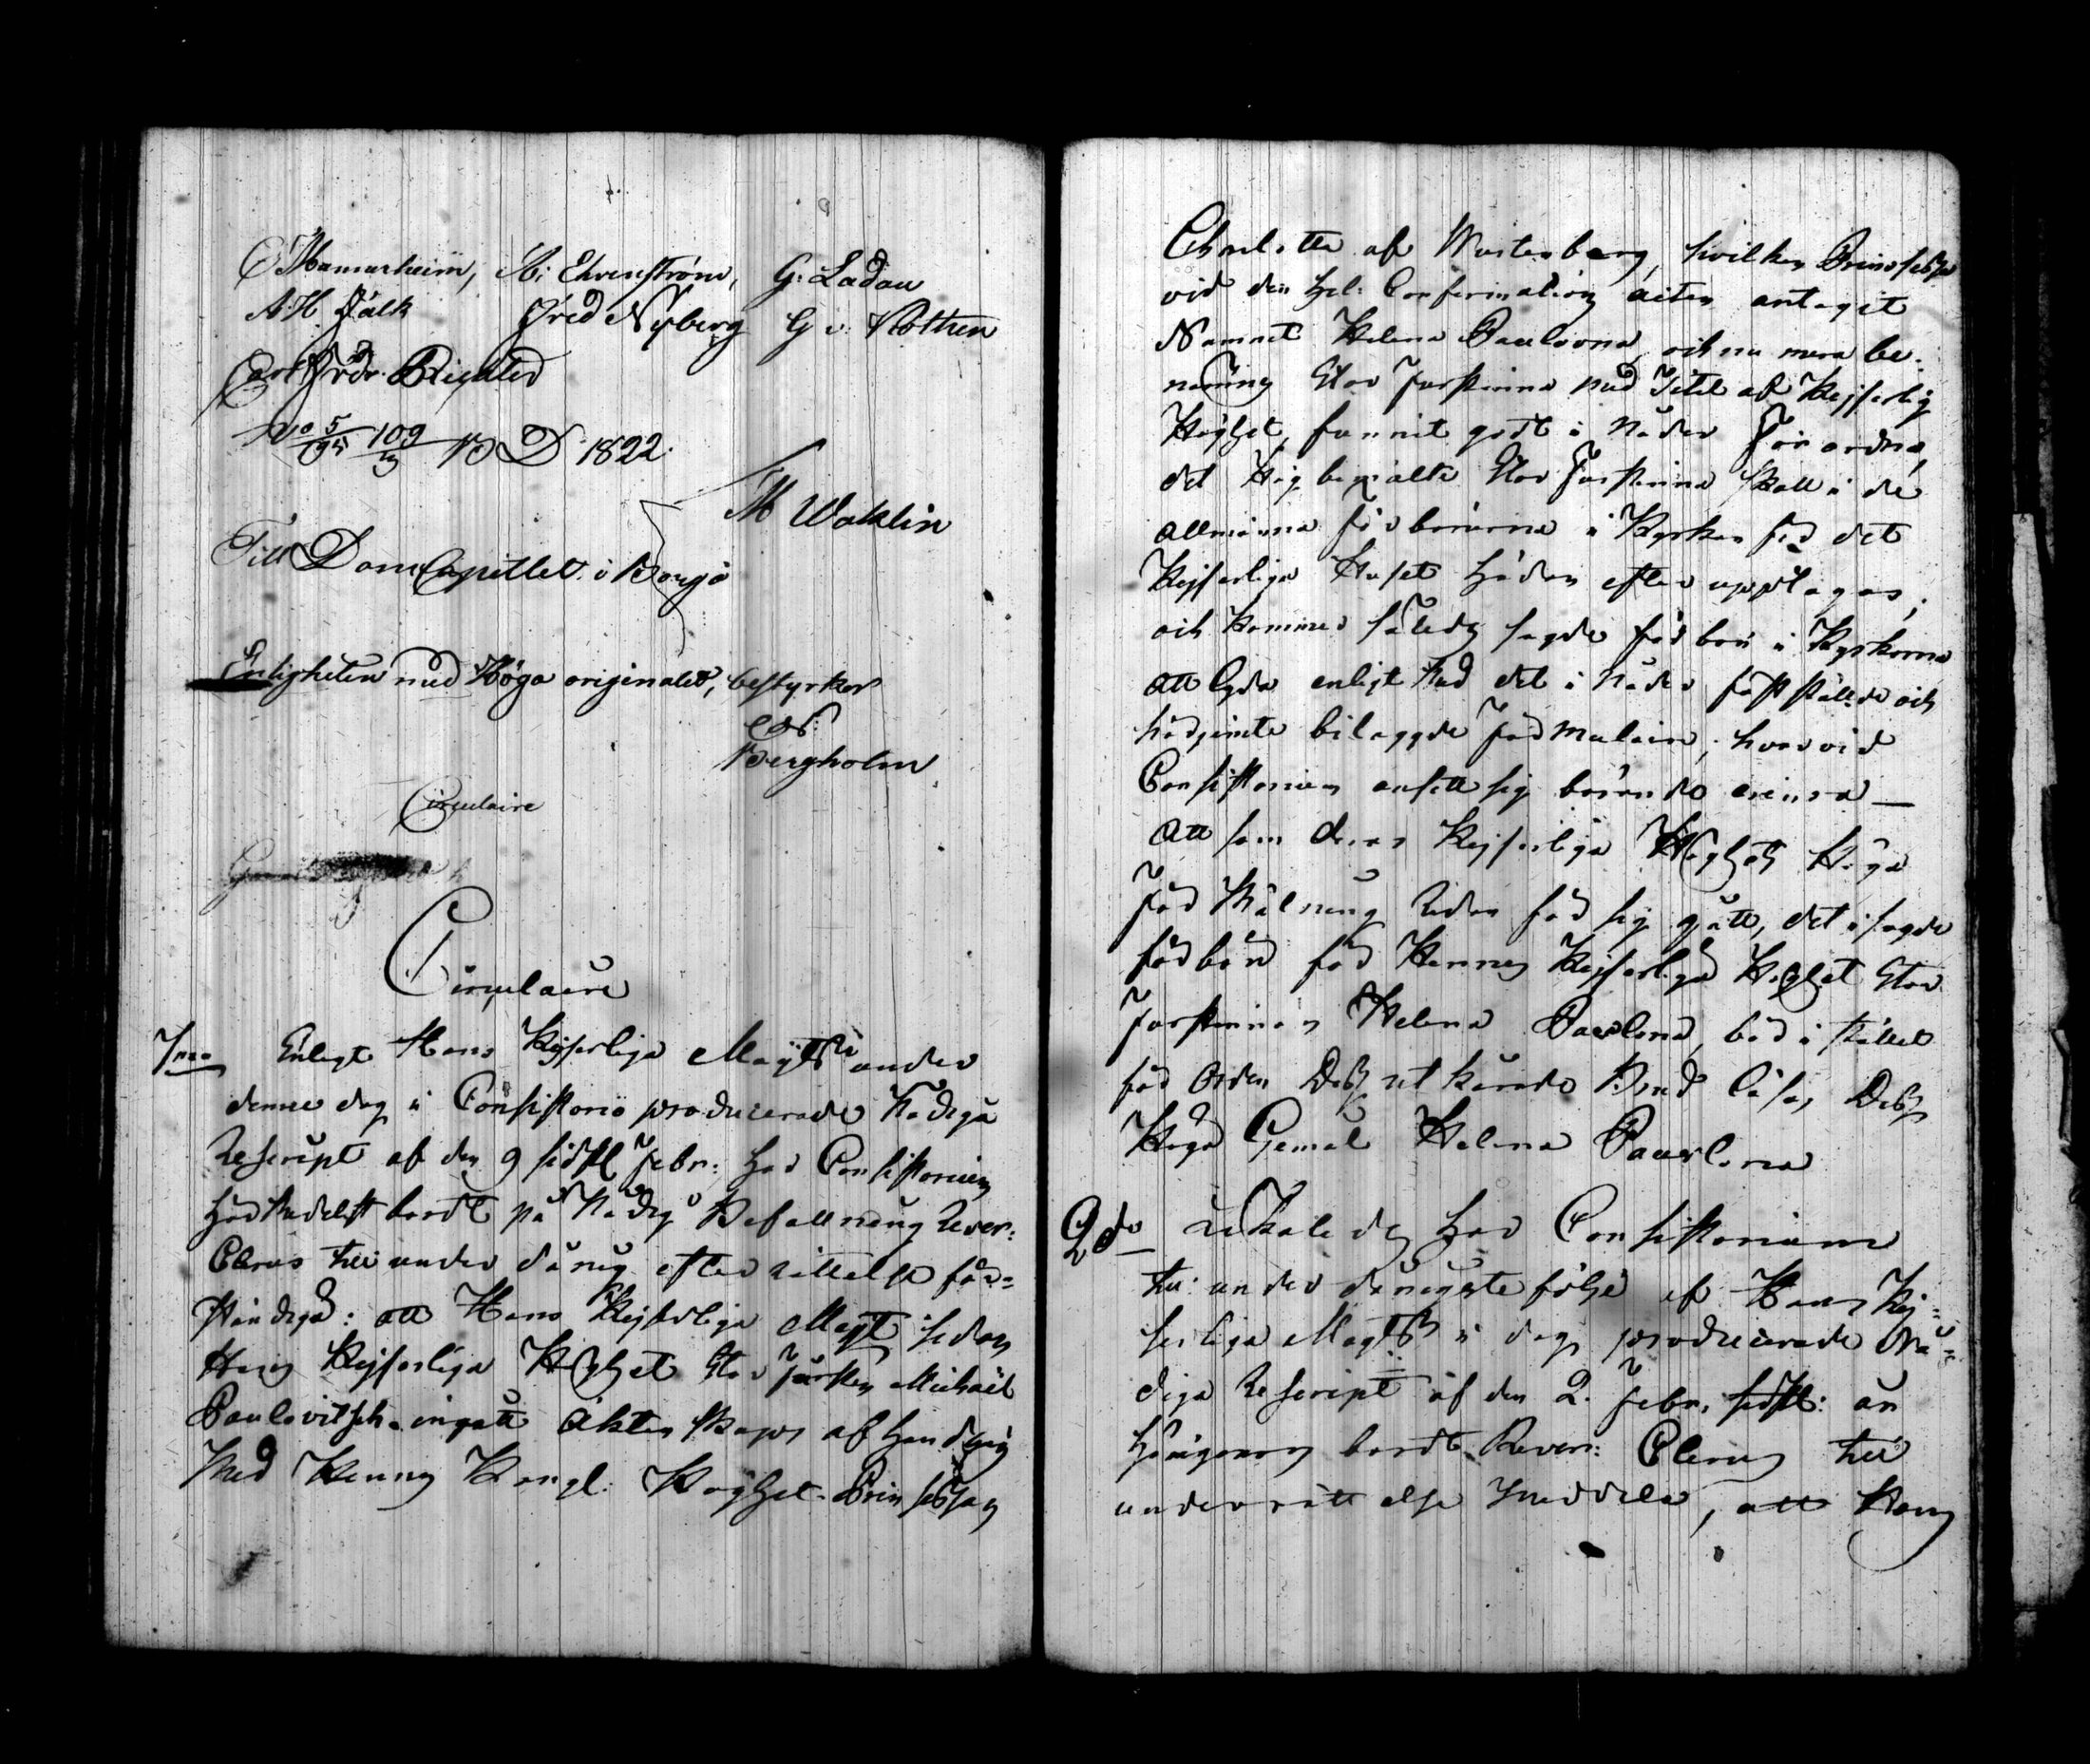 C Mannerheim, A: Ehrenström, G: Ladau
A H Falk Fred Nyberg G v. Rothen
Carl Fredr. Richter
No 5/95 109/3 B D 1822.
M Waklin
Till DomCapitlet i Borgå
Enligheten med Höga originalet, bestyrker
Bergholm
Circulaire
Circulaire
1mo Enligt Hans Kejserliga Majts under
denne dag i Consistorio producerade Nådiga
Rescript af den 9 sidstl Febr: har Consistorium
härmedelst bordt på Nådig Befallning Rever:
Clerus till underdånig efterrättelse för-
ständiga: att Hans Kejserliga Majt sedan
Hans Kejserliga Höghet Stor Fursten Michaël
Paulovitsch ingått Äktenskaps afhandling
med Hennes Kongl: Höghet Prinsessan
Charlotta af Wurtenberg, hvilken Prinsessa
vid den hel: Confirmation acten antagit
Namnet Helena Paulovna, och nu mera be-
nämning Stor Furstinna med Titel af Kejserlig
Höghet, funnit godt i Nåder förordna,
det Högbemälte Stor Furstinna skall i de
allmänna förbönerna i Kyrkan för det
Kejserliga Huset hädan efter upptagas,
och kommer således sagde förbön i Kyrkorna
att lyda enligt med det i Nåder fastställde och
härjemte bilaggde Formulair, hvarvid
Consistorium ansett sig böra erinra —
att som deras Kejserliga Högheters Höga
Förmälning redan för sig gått, det i sagde
förbön för Hennes Kejserliga Höghet Stor
Furstinnan Helena Pavlona, bör i stället
för orden Dess utkorade Brud läsas Dess
Höga Gemål Helena Pavlona
2do Likaledes har Consistorium
till underdånigste följe af Hans Kej-
serliga Majts i dag producerade Nå-
diga Rescript af den 2. Febr: sidstl: än
härigenom bordt Rever: Clerus till
underrättelse meddela, att Hans